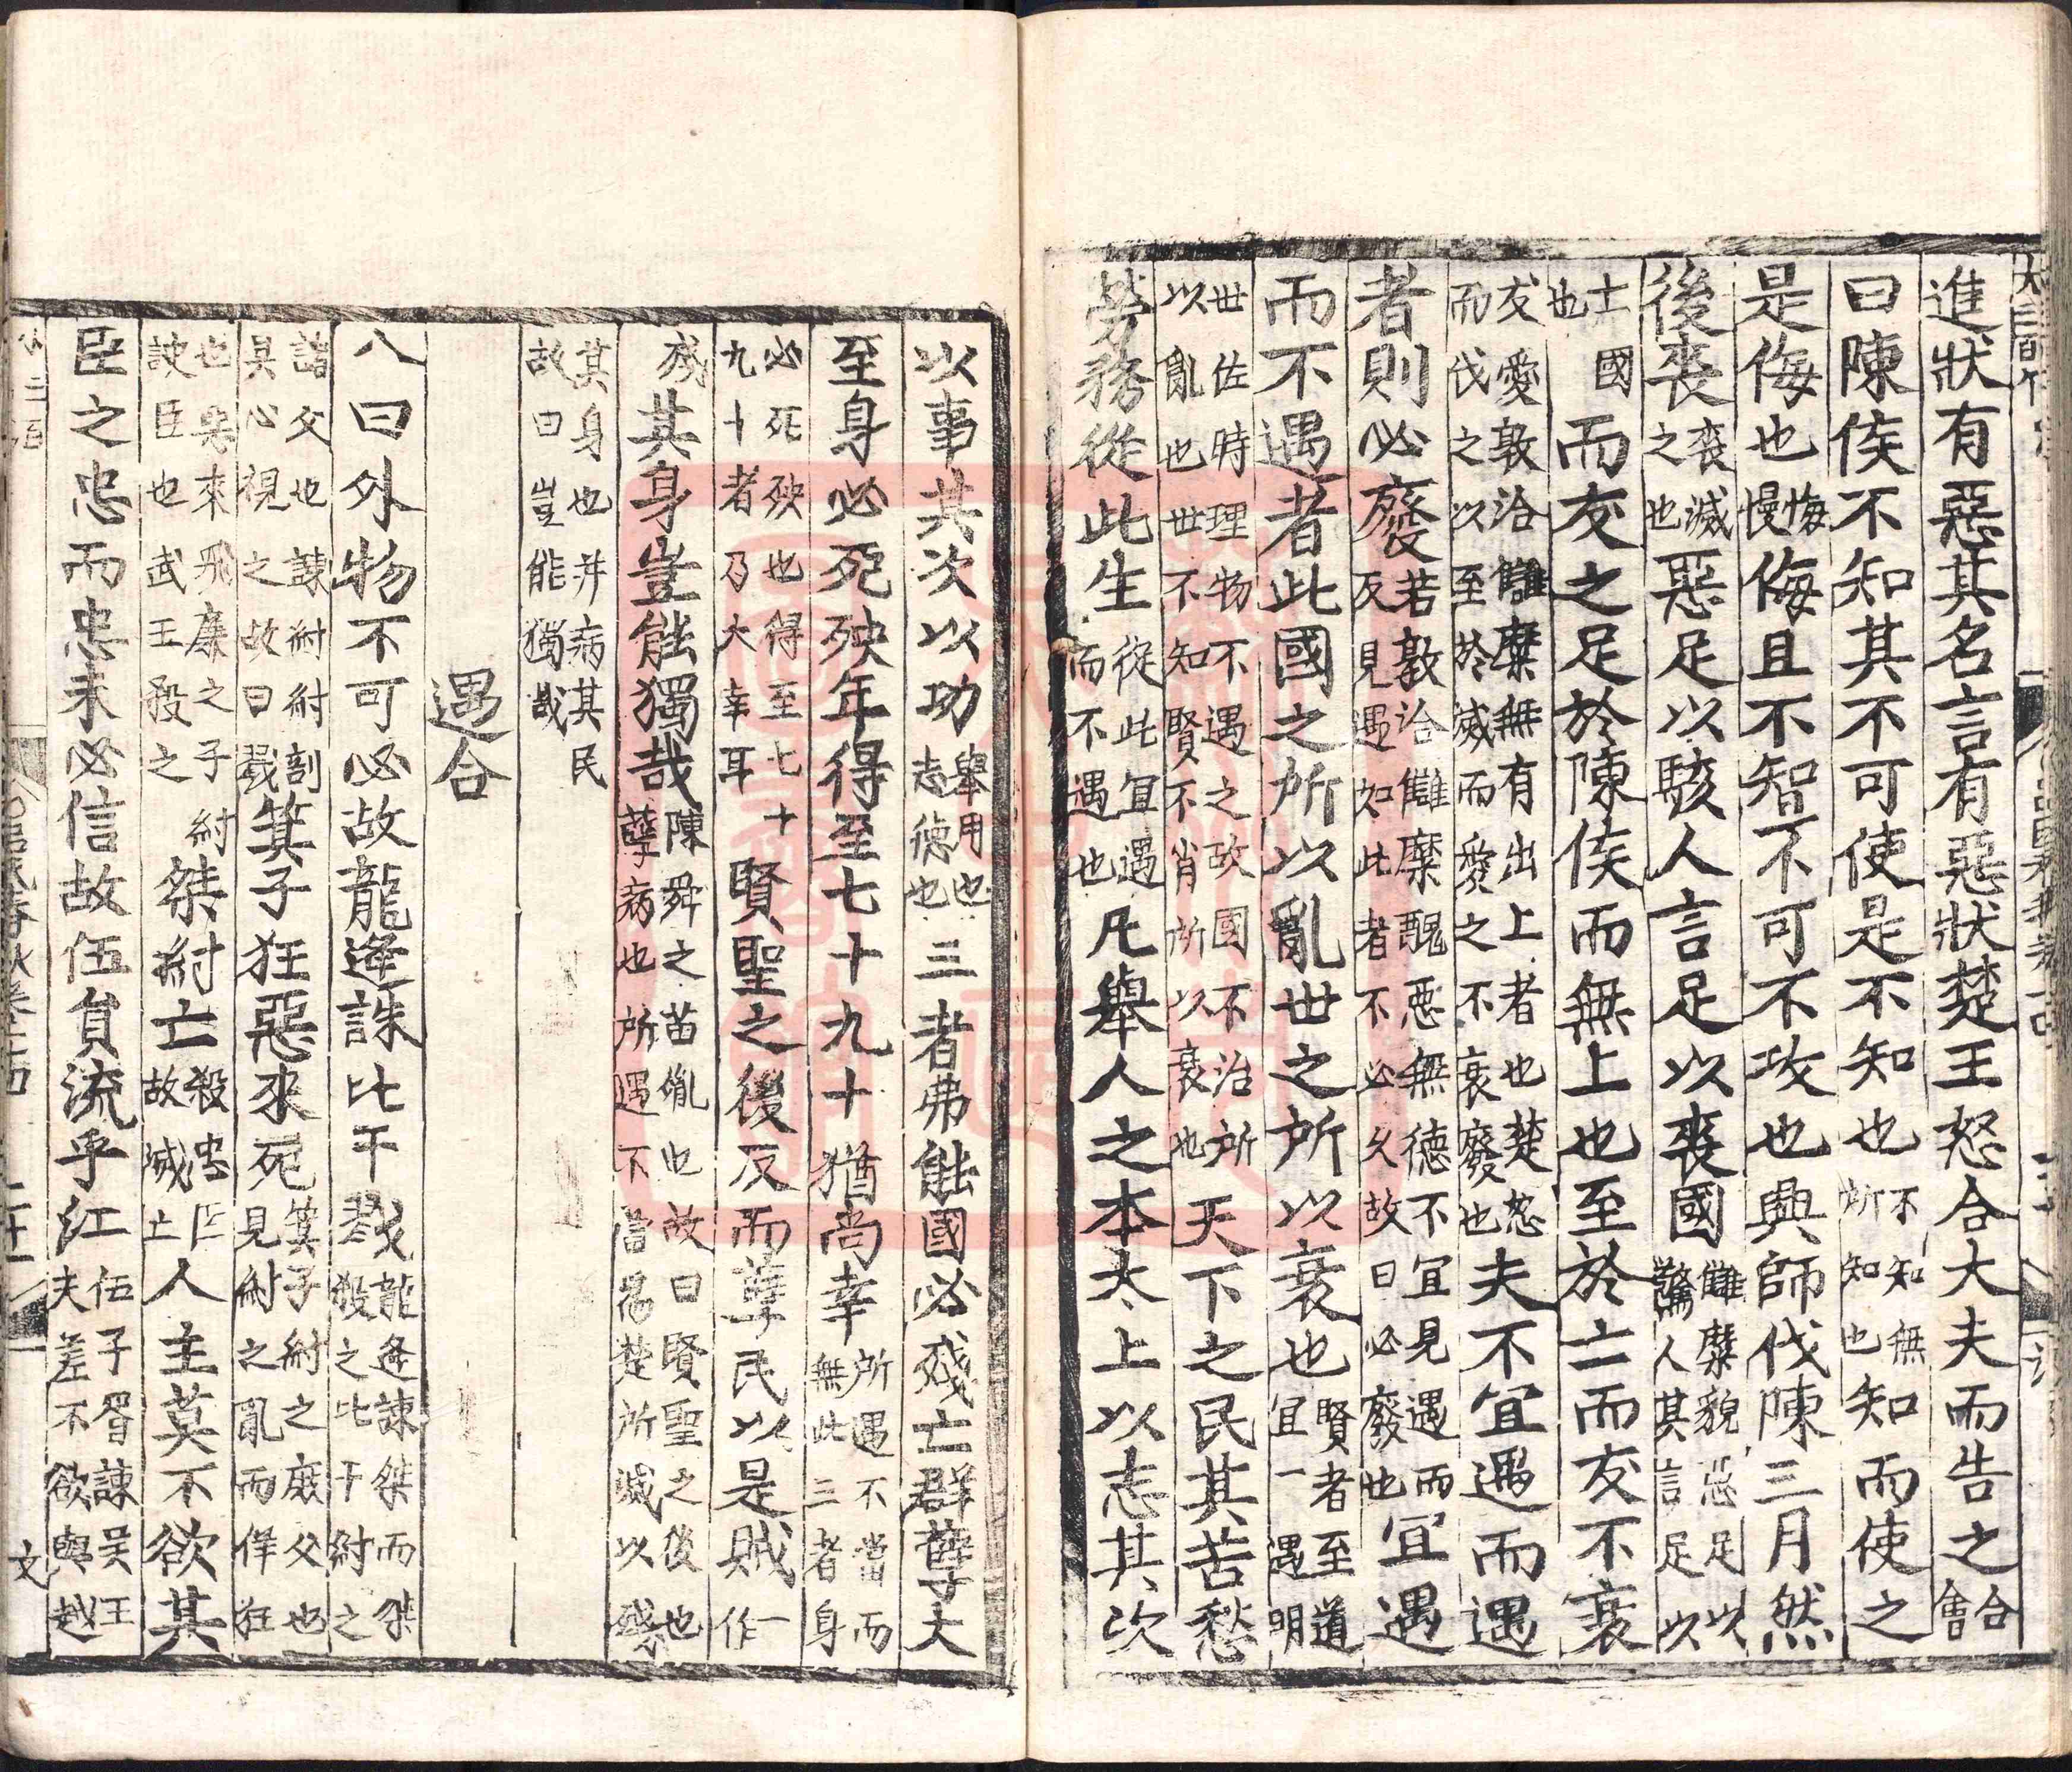 進狀有惡其名言有惡狀楚王怒合大夫而告之合會
曰陳侯不知其不可使是不知也不知無所知也知而使之
是侮也侮慢侮且不智不可不攻也興師伐陳三月然
後喪之喪滅之也惡足以駭人言足以喪國讎麋貌惡足以驚人其言足以
士國也而友之足於陳侯而無上也至於亡而友不衰
友愛敦洽讎麋無有出上者也楚怒而伐之以至於滅而愛之不衰廢也夫不宜遇而遇
者則必廢若敦洽讎麋醜惡無德不宜見遇而反見遇如此者不必久故曰必廢也宜遇
而不遇者此國之所以亂世之所以衰也賢者至道宜一遇明
世佐時理物不遇之故國不治所以亂也世不知賢不肖所以衰也天下之民其苦愁
勞務從此生從此宜遇而不遇也凡舉人之本太上以志其次
以事其次以功舉用也志德也三者弗能國必殘亡群孽大
至身必死殃年得至七十九十猶尚幸所遇不當而無此三者身
必死殃也得至七十九十者乃大幸耳賢聖之後反而孽民以是賊一作
殘其身豈能獨哉陳舜之苗胤也故曰賢聖之後也孽病也所遇不當為楚所滅以殘
其身也并病其民故曰豈能獨哉
遇合
八曰外物不可必故龍逄誅比干戮龍逄諫桀而桀殺之比干紂之
諸父也諫紂紂剖其心視之故曰戮箕子狂惡來死箕子紂之庶父也見紂之亂而佯狂
也惡來飛廉之子紂諛臣也武王殺之桀紂亡殺忠臣故滅亡人主莫不欲其
臣之忠而忠未必信故伍員流乎江伍子胥諫吳王夫差不欲與越
呂氏春秋卷十四
二十一
文